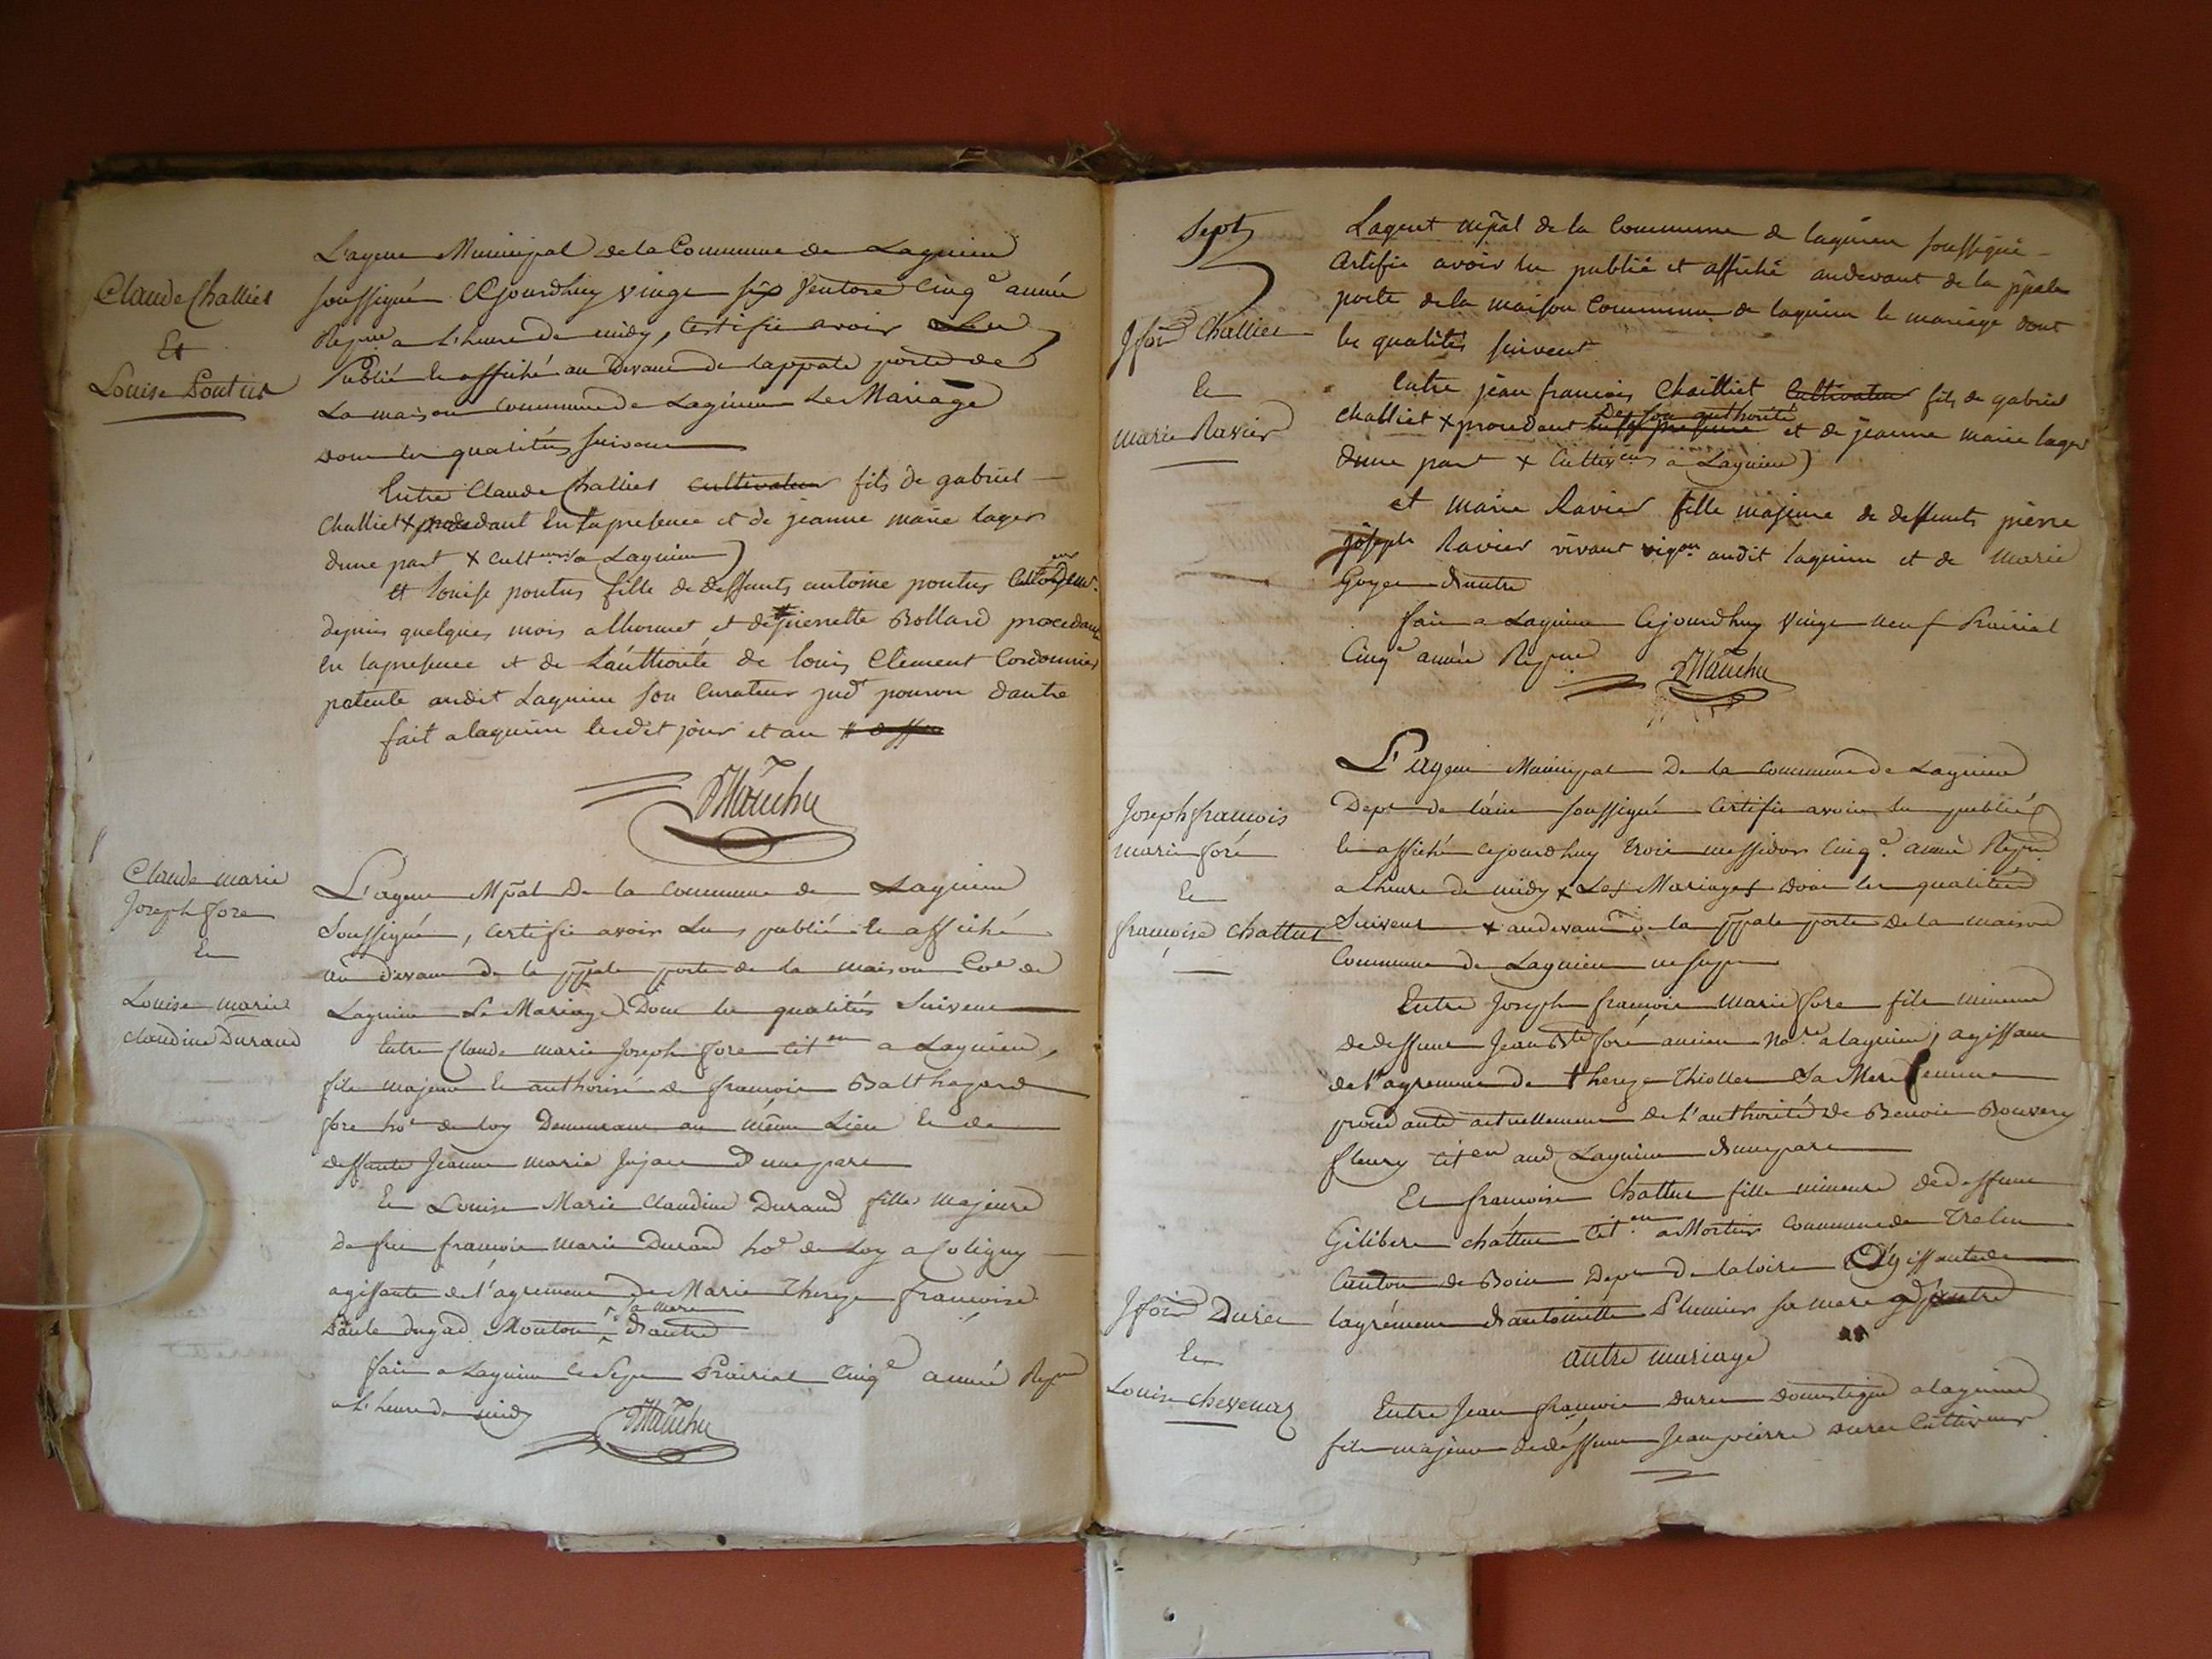 Claude Challiet
Et
Louise Pontus
L'agent Municipal de la Commune de Lagnieu
soussigné Cejourdhuy vingt six ventose Cinq.e année
Repne a L'heure de midy, Certifie avoir Lu
Publié et affiché au devant de lappale porte de
La maison commune de Lagnieu Le Mariage
dont les qualités suivent
Entre Claude Challiet cultivateur fils de gabriel
Challiet x procedant en sa presence et de jeanne marie lager
dune part x Cult.eurs a Lagnieu)
et Louise pontus fille de deffunts antoine pontus
depuis quelques mois a lhormet et de pierrette Bollard procedant
en lapresence et de Lauthorité de louis Clement Cordonnier
patenté audit Lagnieu son Curateur jud.t pourvu dautre
fait a lagnieu lesdit jour et an
Mauchu
Claude marie
Joseph fore
Et
Louise marie
claudine Durand
L'agent Mpal De la commune de Lagnieu
Soussigné, Certifie avoir Lu publié et affiché
au devant de la ppale porte de la maison Co.e de
Lagnieu Le Mariage Dont les qualités Suivent
Entre Claude marie Joseph fore Cit.en a Lagnieu,
fils majeur et authorisé de francois Balthazard
fore ho.e de loy Demeurant au même Lieu et de
deffunte Jeanne marie Jujat d'une part
Et Louise Marie Claudine Durand fille Majeure
de feu francois marie Durand ho.e de Loy a Coligny
agissante de l'agrement de Marie Thereze francoise
Paule dugad Mouton sa mere d'autre
fait a Lagnieu le Sept Prairial Cinq.e année Repne
a L'heure de midy
Mauchu
Sept
J foi.s Challiet
Et
marie Ravier
Lagent mpal de la Commune de lagnieu soussigné
Certifie avoir lu publié et affiché audevant de la ppale
porte de la maison Commune de lagnieu le mariage dont
les qualités suivent
Entre jean francois Chailliet Cultivateur fils de gabriel
challiet x procedant De son authorité et de jeanne marie lager
dune part x Cultiv.eurs a Lagnieu)
et marie Ravier fille majeure de deffunts pierre
joseph Ravier vivant vigon audit lagnieu et de Marie
Goyet dautre
fait a Lagnieu Cejourdhuy Vingt neuf Prairial
Cinq.e année Repne
Mauchu
Joseph francois
marie foré
Et
francoise Chattut
L'agent Municipal De la commune de Lagnieu
Dept de lain soussigné Certifie avoir lu publié
et affiché cejourdhuy trois messidor Cinq.e année Repne
a Lheure de midy x Les Mariages dont les qualités
Suivent x audevant de la ppale porte de la maison
Commune de Lagnieu
Entre Joseph francois Marie fore fils mineur
de deffunt Jean B.te foré ancien No.re a lagnieu, agissant
de l'agrement de thereze thiollet Sa Mere femme
procedante actuellement de l'authorité de Benoit Bouvery
fleury Cit.en aud Lagnieu dune part
Et francoise Chattut fille mineure de deffunt
Gilibert chattut Cit.en a Mortier commune de Trelin
Canton de Boin Dept de la loire agissante de
lagrement dantoinette Plumier sa mere d'autre
autre mariage
J foi.s Duret
Et
Louise chevenaz
Entre Jean francois duret domestique a lagnieu
fils majeur de deffunt Jean pierre duret Cultivateur